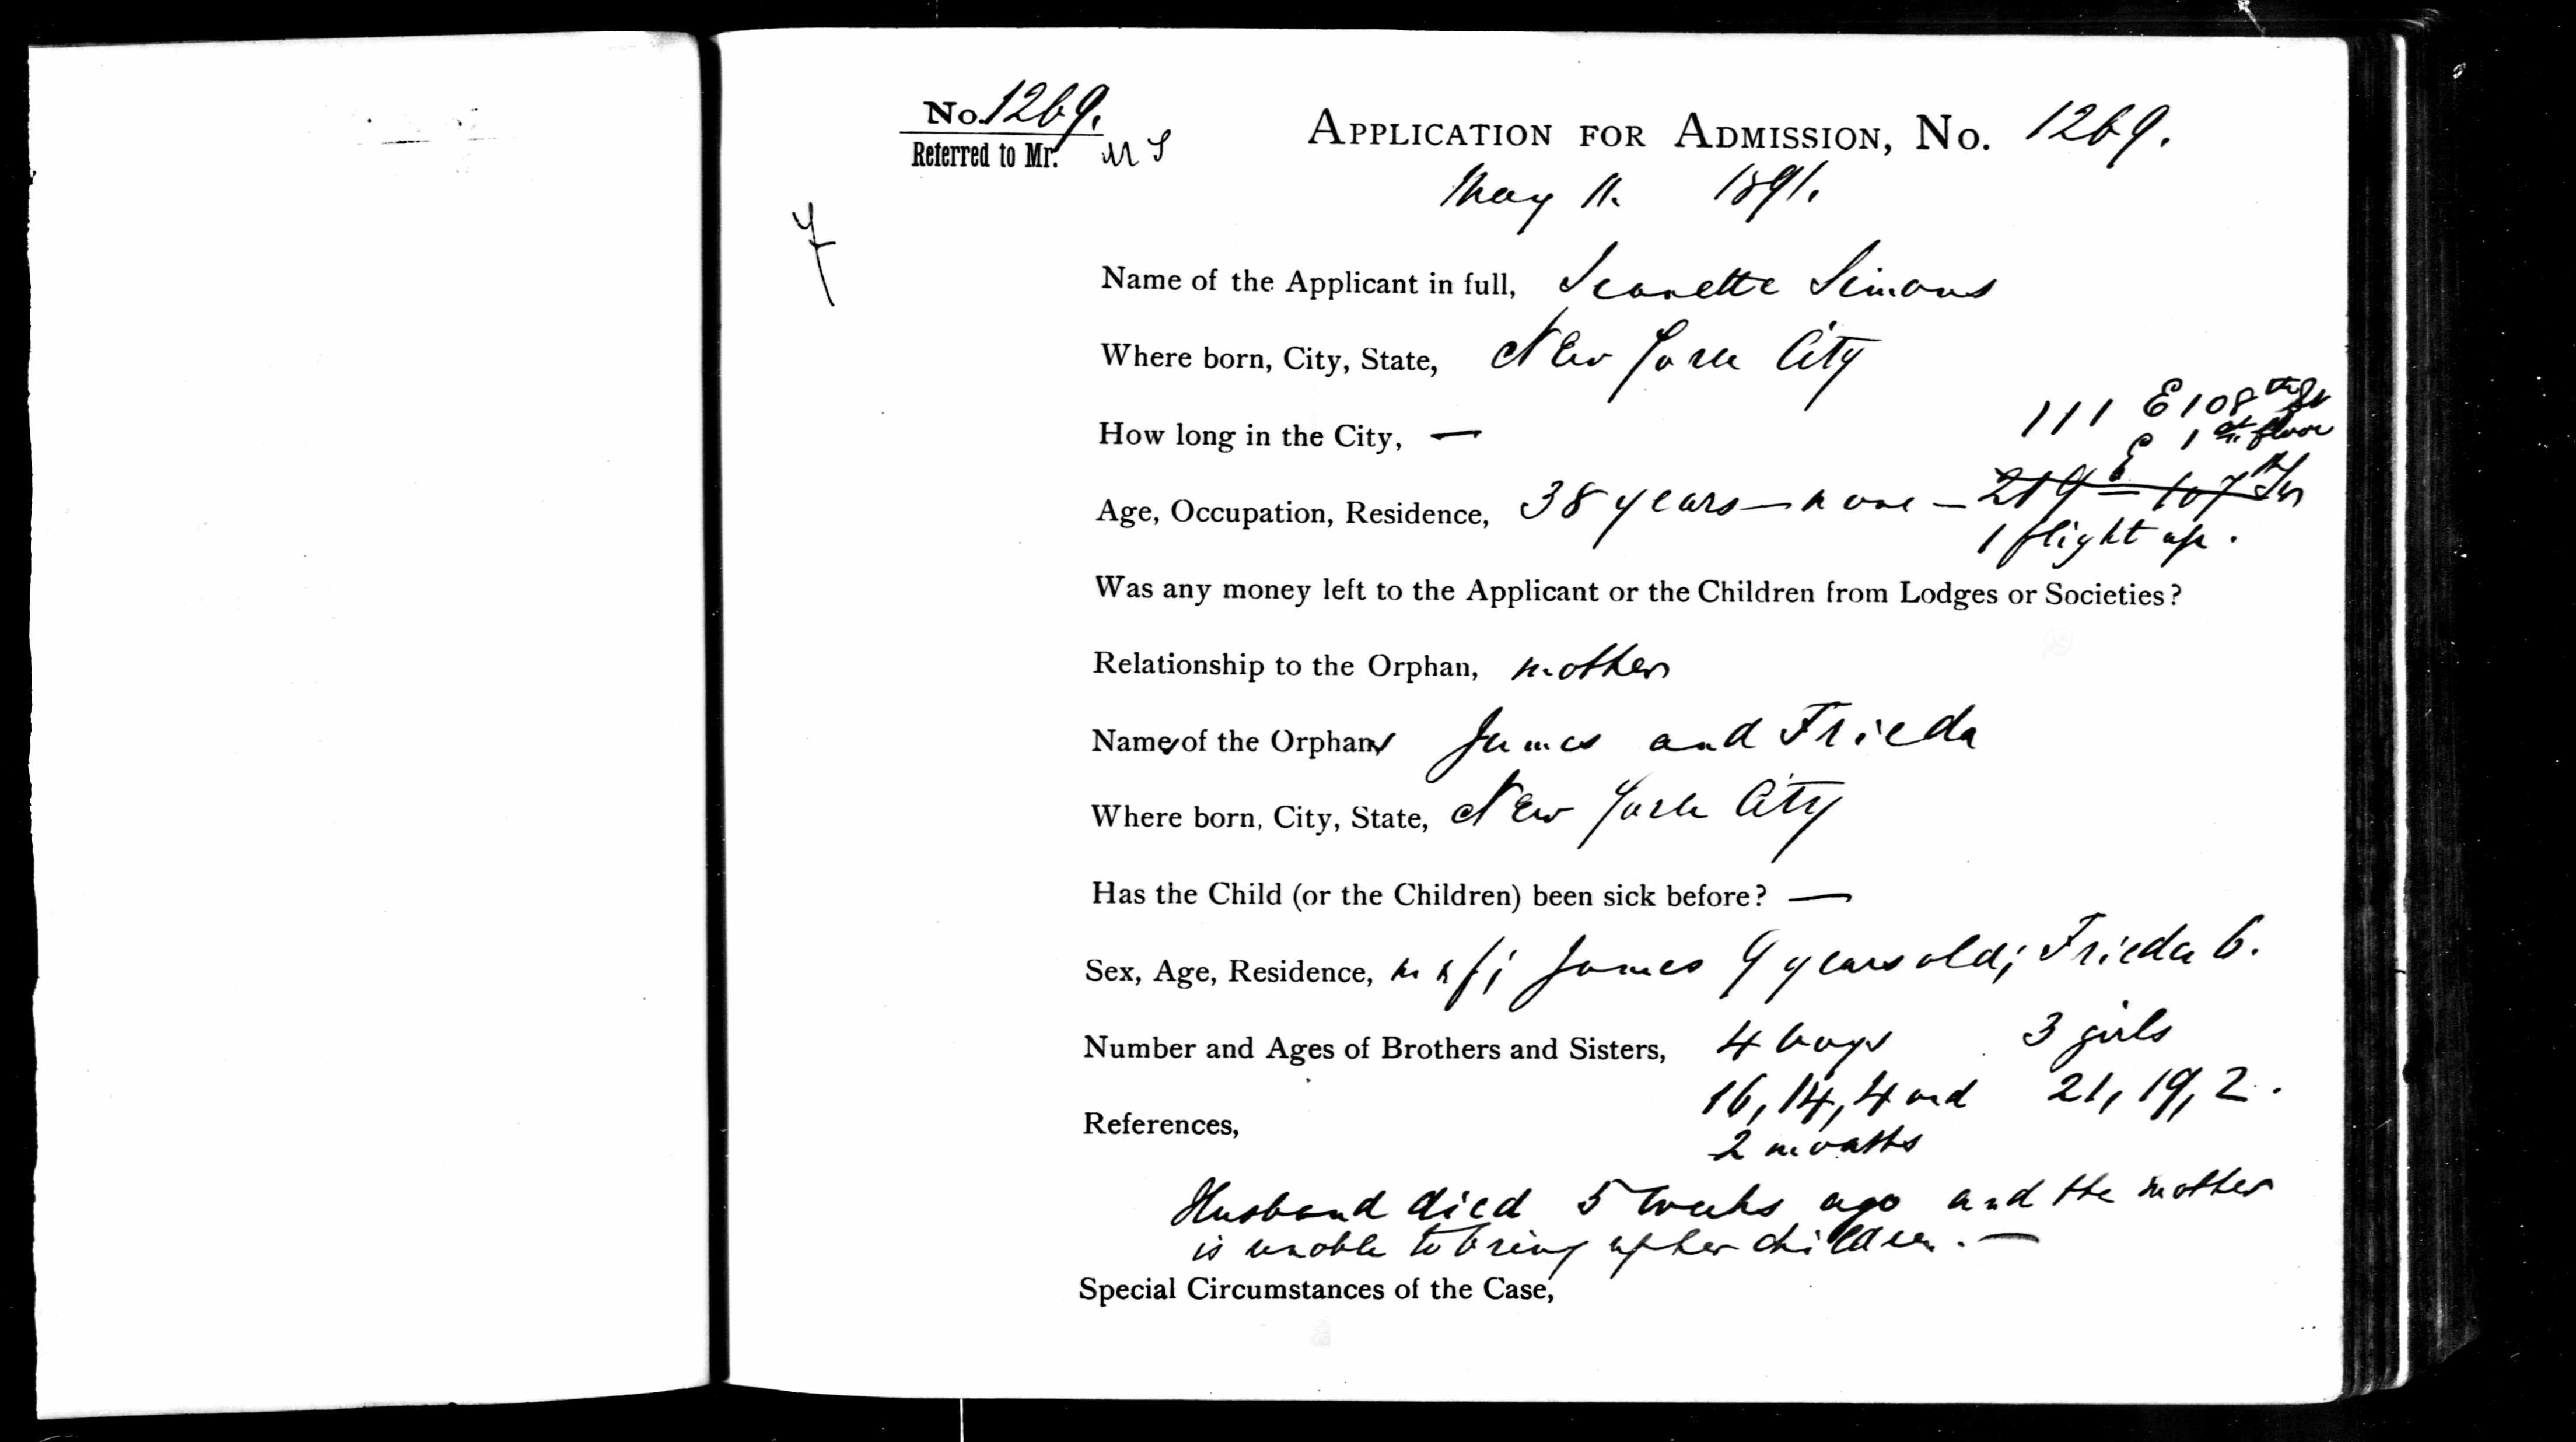 No. 1269.
Referred to Mr. M S
APPLICATION FOR ADMISSION, No. 1269.
May 11. 1891.
Name of the Applicant in full, Jeanette Simons
Where born, City, State, New York City
How long in the City, —
111 E 108th St
E 1st floor
Age, Occupation, Residence, 38 years — none — 219 E 107th St
1 flight up.
Was any money left to the Applicant or the Children from Lodges or Societies?
Relationship to the Orphan, mother
Names of the Orphans James and Frieda
Where born, City, State, New York City
Has the Child (or the Children) been sick before? —
Sex, Age, Residence, m & f; James 9 years old; Frieda 6.
Number and Ages of Brothers and Sisters, 4 boys 3 girls
16, 14, 4 and 21, 19, 2.
References,
2 months
Husband died 5 weeks ago and the mother
is unable to bring up her children. —
Special Circumstances of the Case,